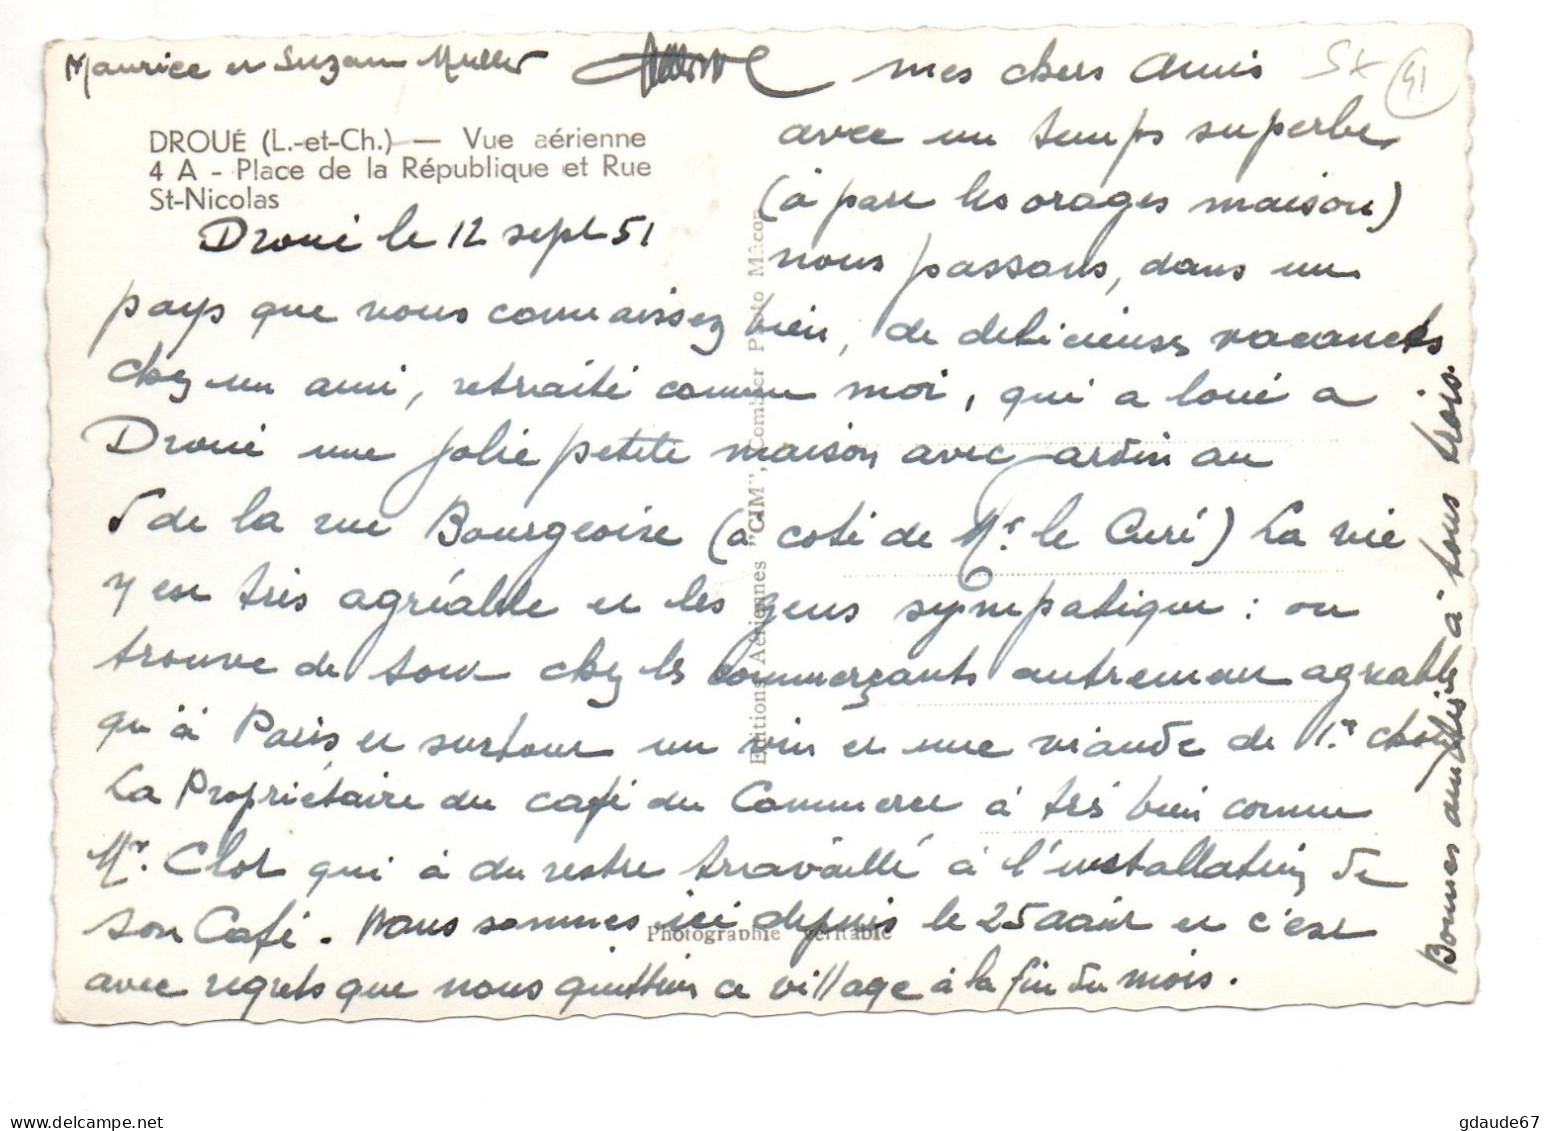 Maurice et Suzan Muller
mes chers Amis
41
DROUÉ (L.-et-Ch.) — Vue aérienne
4 A - Place de la République et Rue
St-Nicolas
Droué le 12 sept 51
avec un temps superbe
(à part les orages maison)
nous passons, dans un
pays que vous connaissez bien, de delicieuses vacances
chez un ami, retraité comme moi, qui a loué a
Droué une jolie petite maison avec jardin au
5 de la rue Bourgeoise (à coté de Mr. le Curé) La vie
y est très agréable et les gens sympatique : on
trouve de tout chez les commerçants autrement agréable
qu'à Paris et surtout un vin et une viande de 1.er choix
La Propriétaire du café du Commerce à très bien connu
Mr. Clot qui à du reste travaillé à l'installation de
son Café. Nous sommes ici depuis le 25 aout et c'est
avec regrets que nous quittons ce village à la fin du mois.
Bonnes amitiés à tous trois.
Editions Aériennes "CIM", Combier Photo Mâcon
Photographie véritable
www.delcampe.net
gdaude67